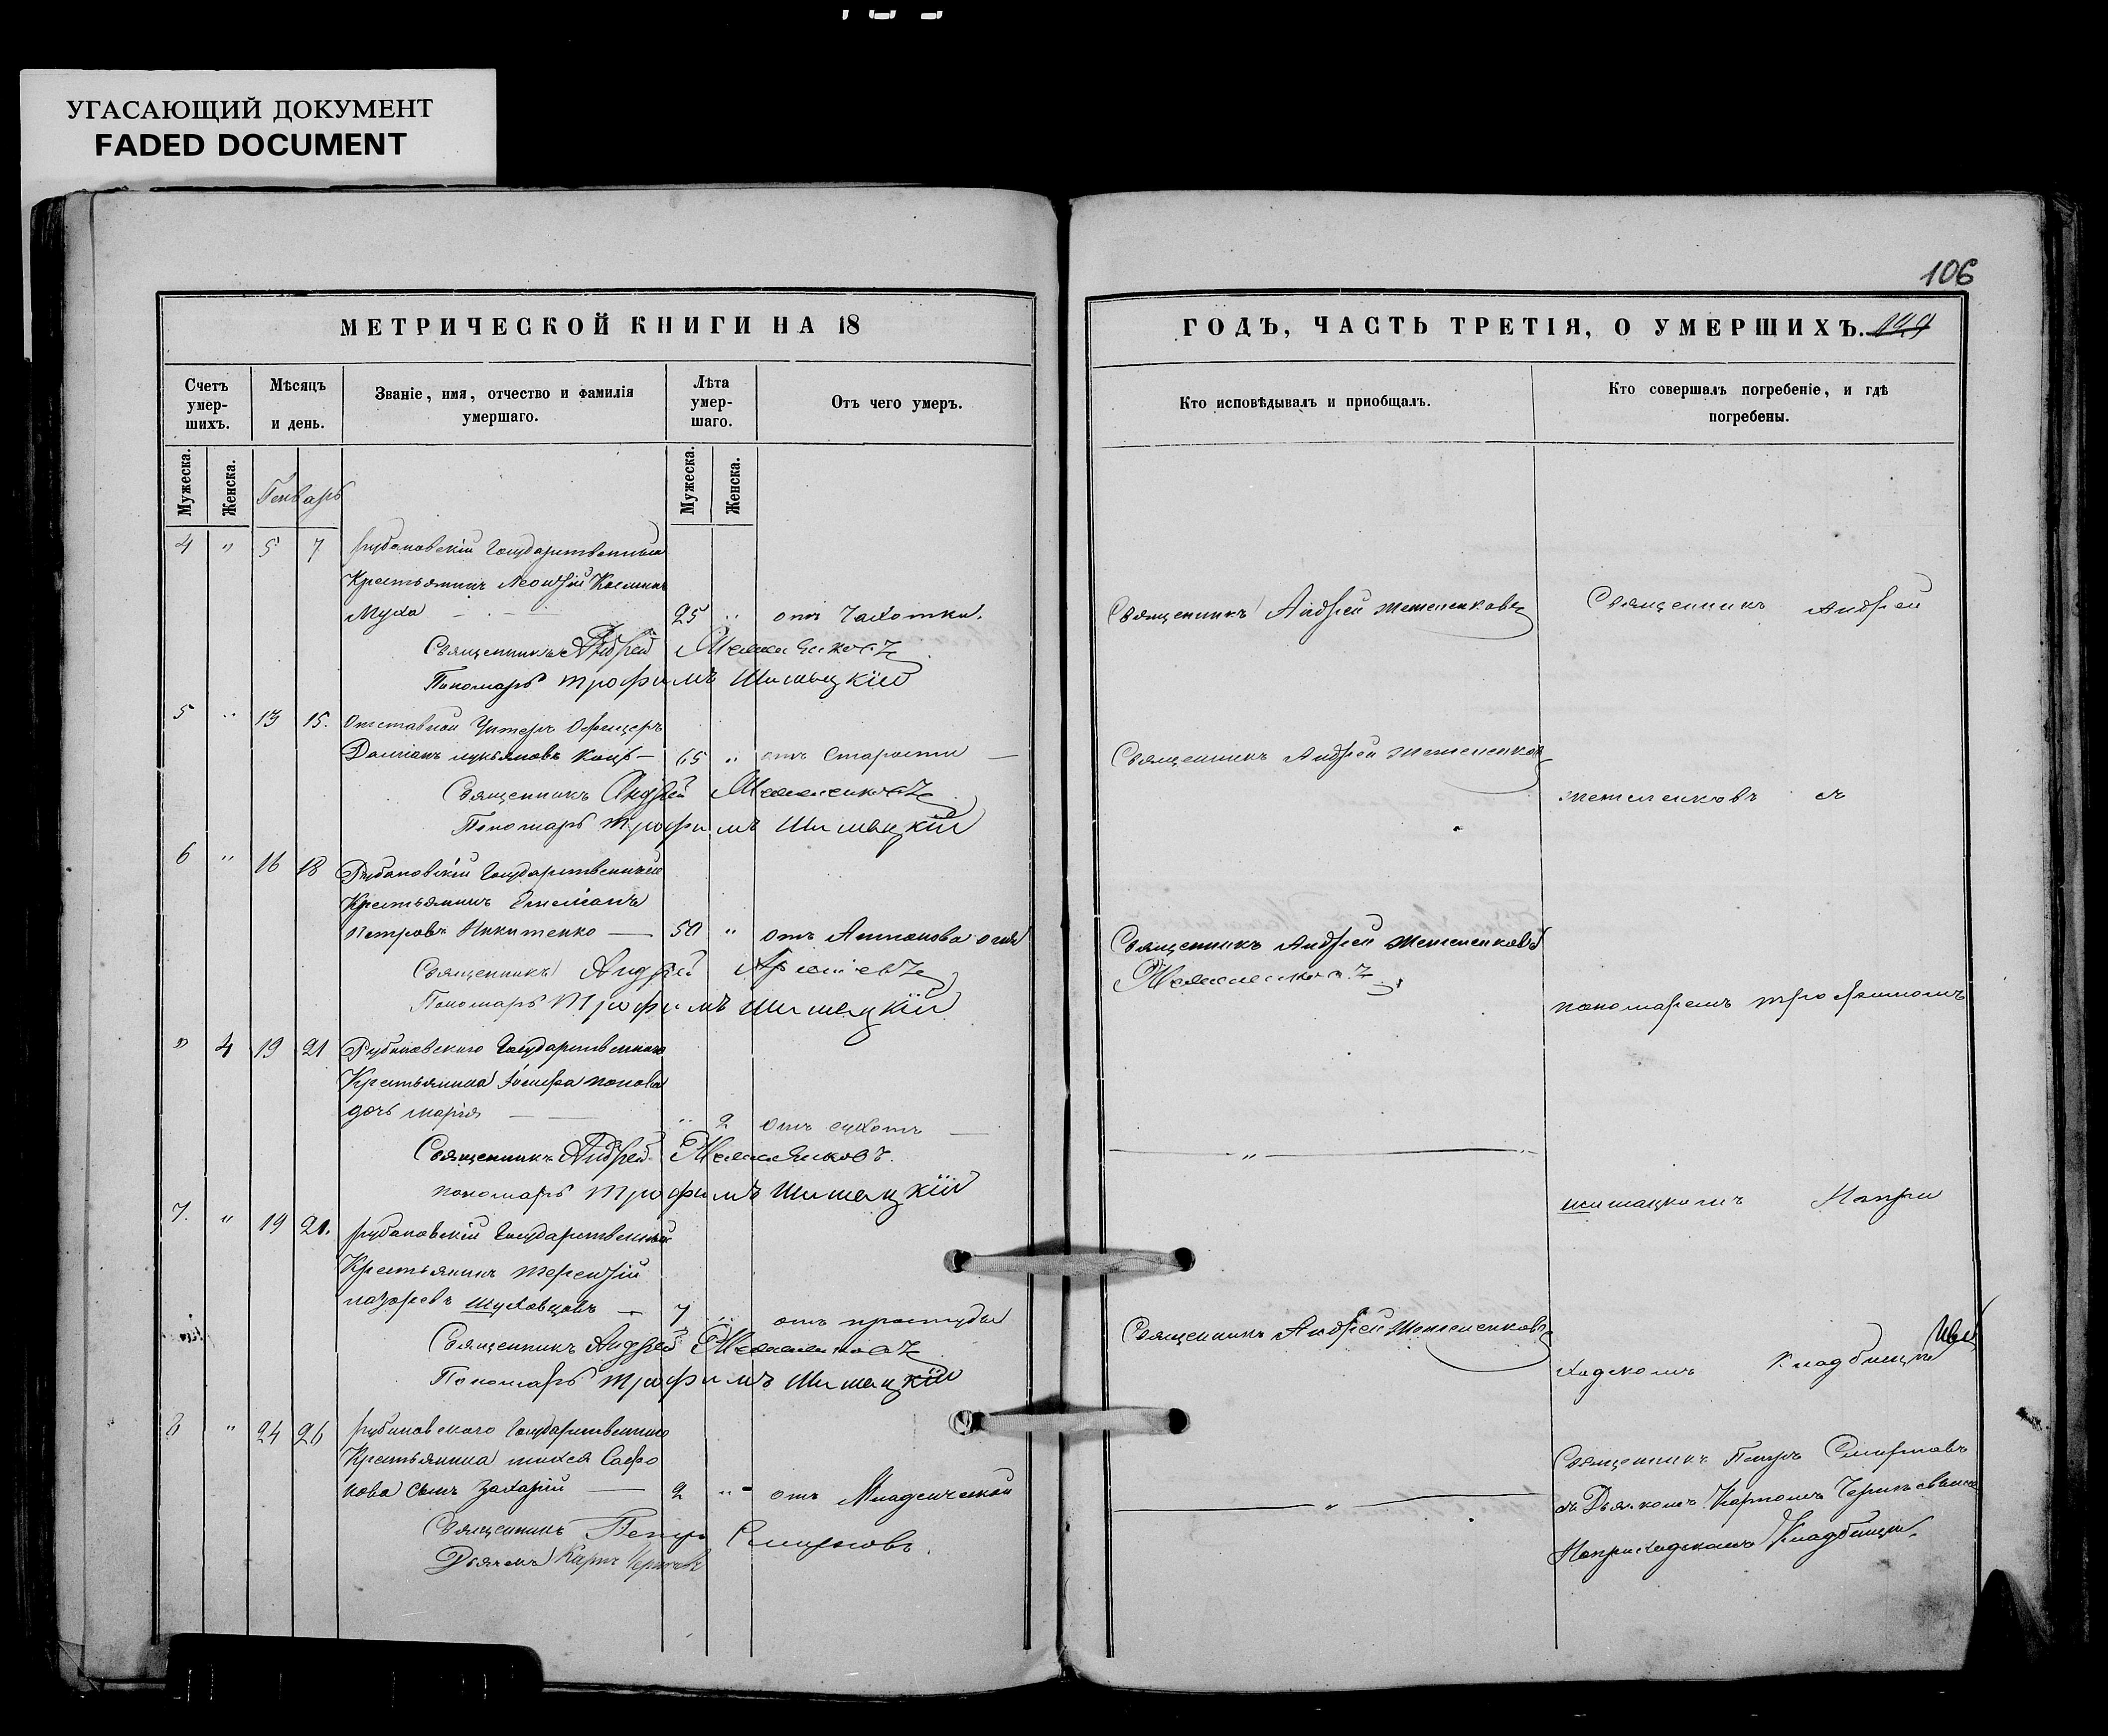 УГАСАЮЩИЙ ДОКУМЕНТ
FADED DOCUMENT
106
МЕТРИЧЕСКОЙ КНИГИ НА 18
Счетъ умер-шихъ.
Мѣсяцъ и день.
Званіе, имя, отчество и фамилія умершаго.
Лѣта умер-шаго.
Отъ чего умеръ.
Мужеска.
Женска.
Генварь
Мужеска.
Женска.
4 " 5 7 Рубановскій Государственный
Крестьянинъ Леонтій Косминъ
Муха 25 " отъ Чахотки.
Священникъ Андрей
Пономарь Трофимъ Шишацкій
5 " 13 15. Отставной Унтеръ Офицеръ
Даміанъ Лукьяновъ Коцъ 65 " отъ Старости
Священникъ Андрей
Пономарь Трофимъ Шишацкій
6 " 16 18 Рубановскій Государственный
Крестьянинъ Емеліанъ
Петровъ Никитенко 50 " отъ Антонова огня
Священникъ Андрей
Пономарь Трофимъ Шишацкій
" 4 19 21 Рубановскаго Государственнаго
Крестьянина Іосифа Попова
дочь Марія " 2 отъ сухотъ
Священникъ Андрей
Пономарь Трофимъ Шишацкій
7. " 19 21. Рубановскій Государственный
Крестьянинъ Терентій
Назаревъ Шуховцовъ 7 " отъ простуды
Священникъ Андрей
Пономарь Трофимъ Шишацкій
8 " 24 26 Рубановскаго Государственнаго
Крестьянина Михея Сафро
нова сынъ Захарій 2 " отъ Младенческой
Священникъ Петръ Смирновъ.
Дьячекъ Карпъ
ГОДЪ, ЧАСТЬ ТРЕТІЯ, О УМЕРШИХЪ.
Кто исповѣдывалъ и приобщалъ.
Кто совершалъ погребеніе, и гдѣ погребены.
Священникъ Андрей
Священникъ Андрей
Священникъ Андрей
"
Священникъ Андрей
"
Священникъ Андрей
съ
пономаремъ Трофимомъ
Шишацкимъ На при
ходскомъ Кладбищѣ
Священникъ Петръ Смирновъ
съ Дьячкомъ Карпомъ
На приходскомъ Кладбищѣ.